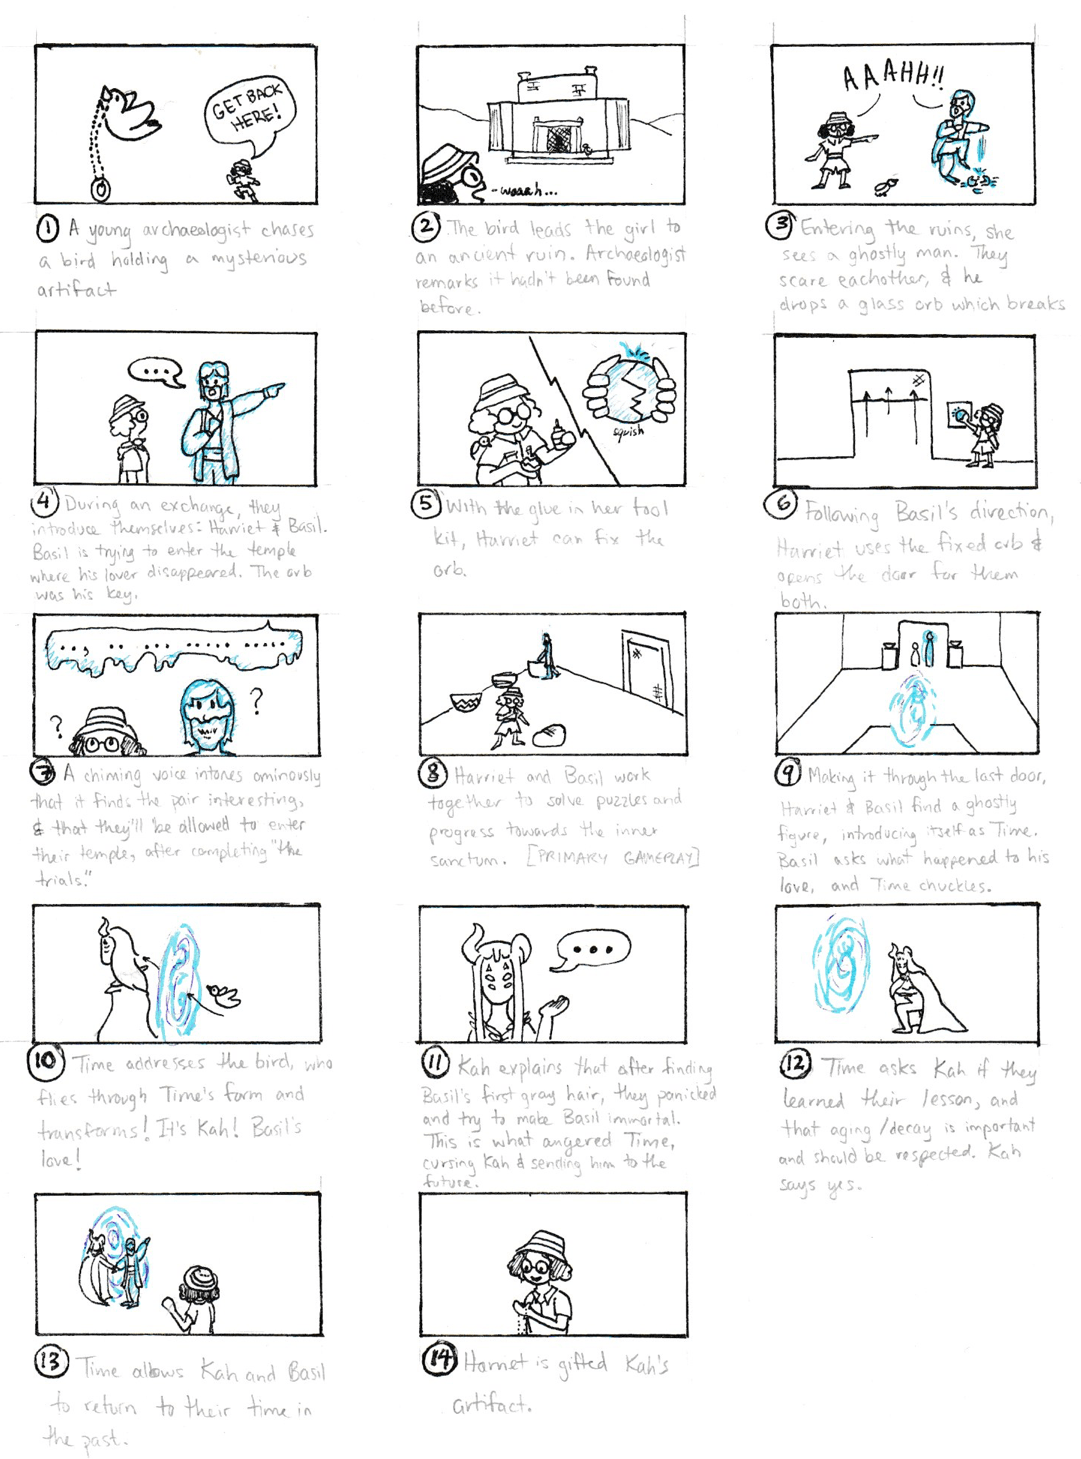 GET BACK
HERE!
1 A young archaeologist chases
a bird holding a mysterious
artifact
-woaah...
2 The bird leads the girl to
an ancient ruin. Archaeologist
remarks it hadn't been found
before.
AAAHH!!
3 Entering the ruins, she
sees a ghostly man. They
scare eachother, & he
drops a glass orb which breaks
...
4 During an exchange, they
introduce themselves: Harriet & Basil.
Basil is trying to enter the temple
where his lover disappeared. The orb
was his key.
squish
5 With the glue in her tool
kit, Harriet can fix the
orb.
6 Following Basil's direction,
Harriet uses the fixed orb &
opens the door for them
both.
? ?
7 A chiming voice intones ominously
that it finds the pair interesting,
& that they'll be allowed to enter
their temple, after completing "the
trials."
8 Harriet and Basil work
together to solve puzzles and
progress towards the inner
sanctum. [PRIMARY GAMEPLAY]
9 Making it through the last door,
Harriet & Basil find a ghostly
figure, introducing itself as Time.
Basil asks what happened to his
love, and Time chuckles.
10 Time addresses the bird, who
flies through Time's form and
transforms! It's Kah! Basil's
love!
...
11 Kah explains that after finding
Basil's first gray hair, they panicked
and try to make Basil immortal.
This is what angered Time,
cursing Kah & sending him to the
future.
12 Time asks Kah if they
learned their lesson, and
that aging/decay is important
and should be respected. Kah
says yes.
13 Time allows Kah and Basil
to return to their time in
the past.
14 Harriet is gifted Kah's
artifact.